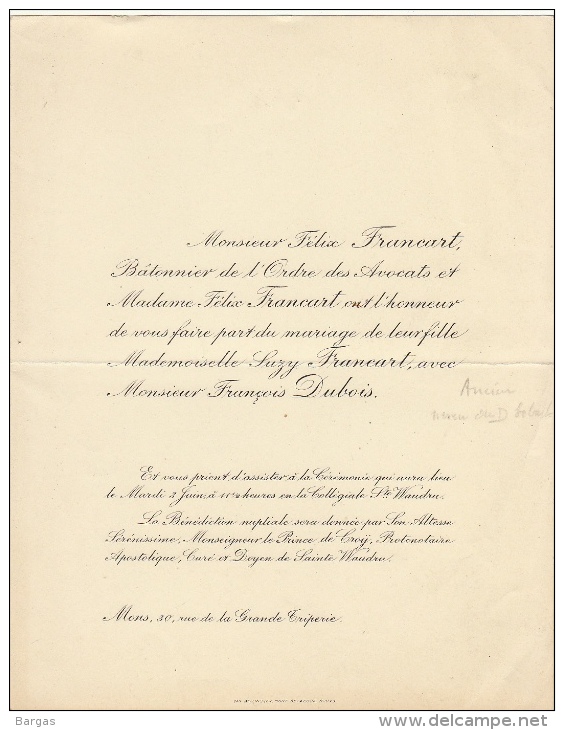 Monsieur Félix Francart,
Bâtonnier de l'Ordre des Avocats et
Madame Félix Francart ont l'honneur
de vous faire part du mariage de leur fille
Mademoiselle Suzy Francart, avec
Monsieur François Dubois.
Ancien
du D
Et vous prient d'assister à la Cérémonie qui aura lieu
le Mardi 3 Juin, à 11 ½ heures en la Collégiale Ste Waudru.
La Bénédiction nuptiale sera donnée par Son Altesse
Sérénissime, Monseigneur le Prince de Croÿ, Protonotaire
Apostolique, Curé et Doyen de Sainte Waudru.
Mons, 30, rue de la Grande Triperie.
Bargas
delcampe.net